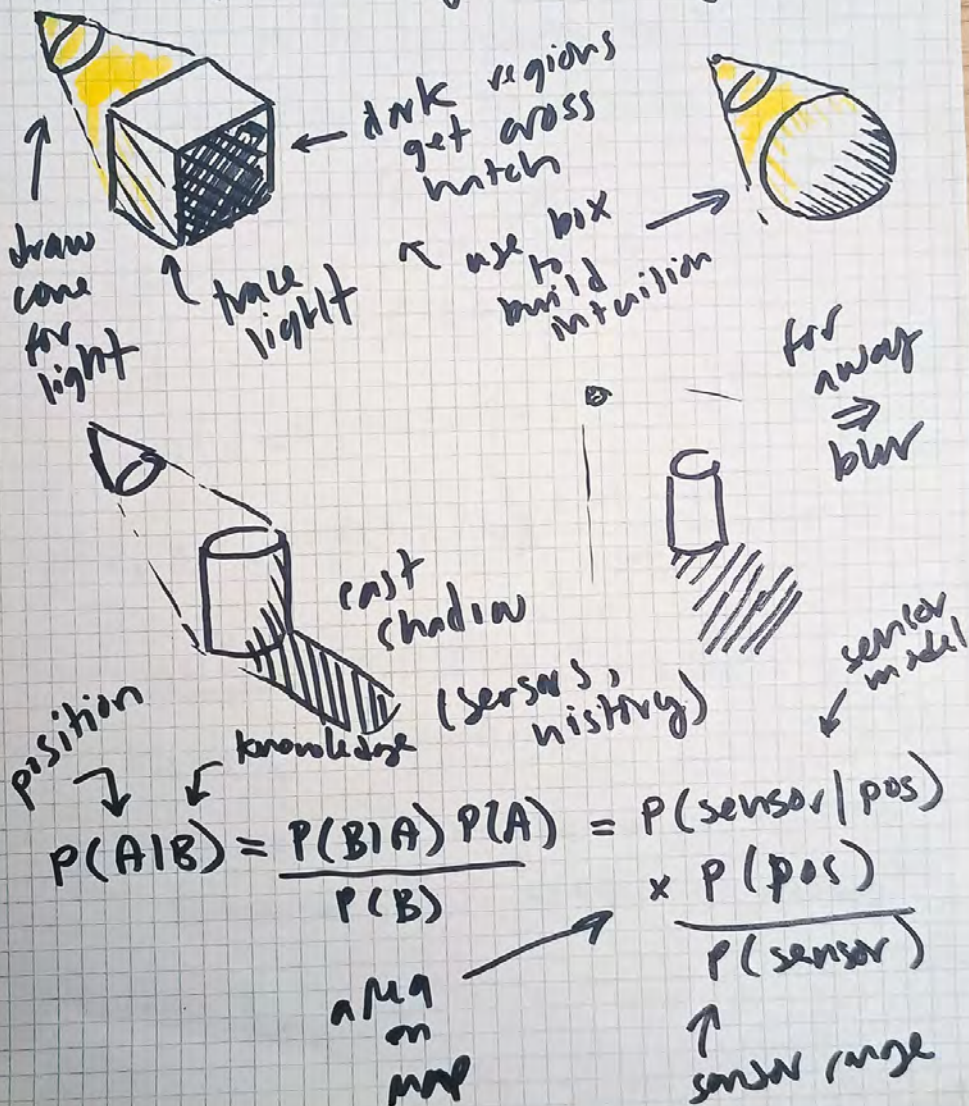 ← dark regions
get cross
hatch
draw
cone
for
light
trace
light
use box
to
build
intuition
far
away
⇒
blur
cast
shadow
(sensors,
history)
sensor
model
position
knowledge
P(A|B) = P(B|A) P(A) / P(B) = P(sensor | pos)
x P(pos)
P(sensor)
area
on
map
sensor range